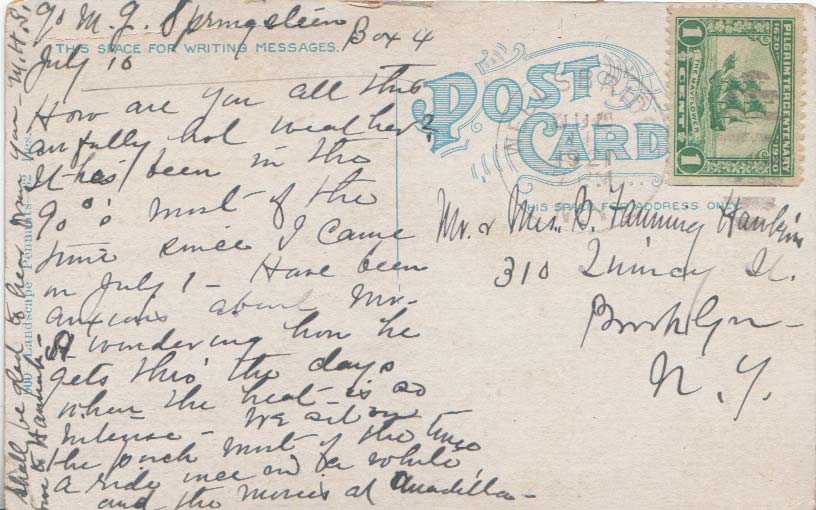 c/o M. J. Springstein
Box 4
THIS SPACE FOR WRITING MESSAGES.
July 10
How are you all this
awfully hot weather?
It has been in the
90°s most of the
time since I came
on July 1 - Have been
anxious about Mr.
H wondering how he
gets thro' the days
when the heat is so
intense - We sit on
the porch most of the time
a ride once in a while,
and the movies at Unadilla -
shall be glad to hear from you - M.H.S.
to Hannah -
Landscape
POST
CARD
1921
PILGRIM TERCENTENARY
1620 1920
THE MAYFLOWER
1 CENT 1
THIS SPACE FOR ADDRESS ONLY
Mr. & Mrs. B. Fanning Hankin
310 Quincy St.
Brooklyn -
N.Y.